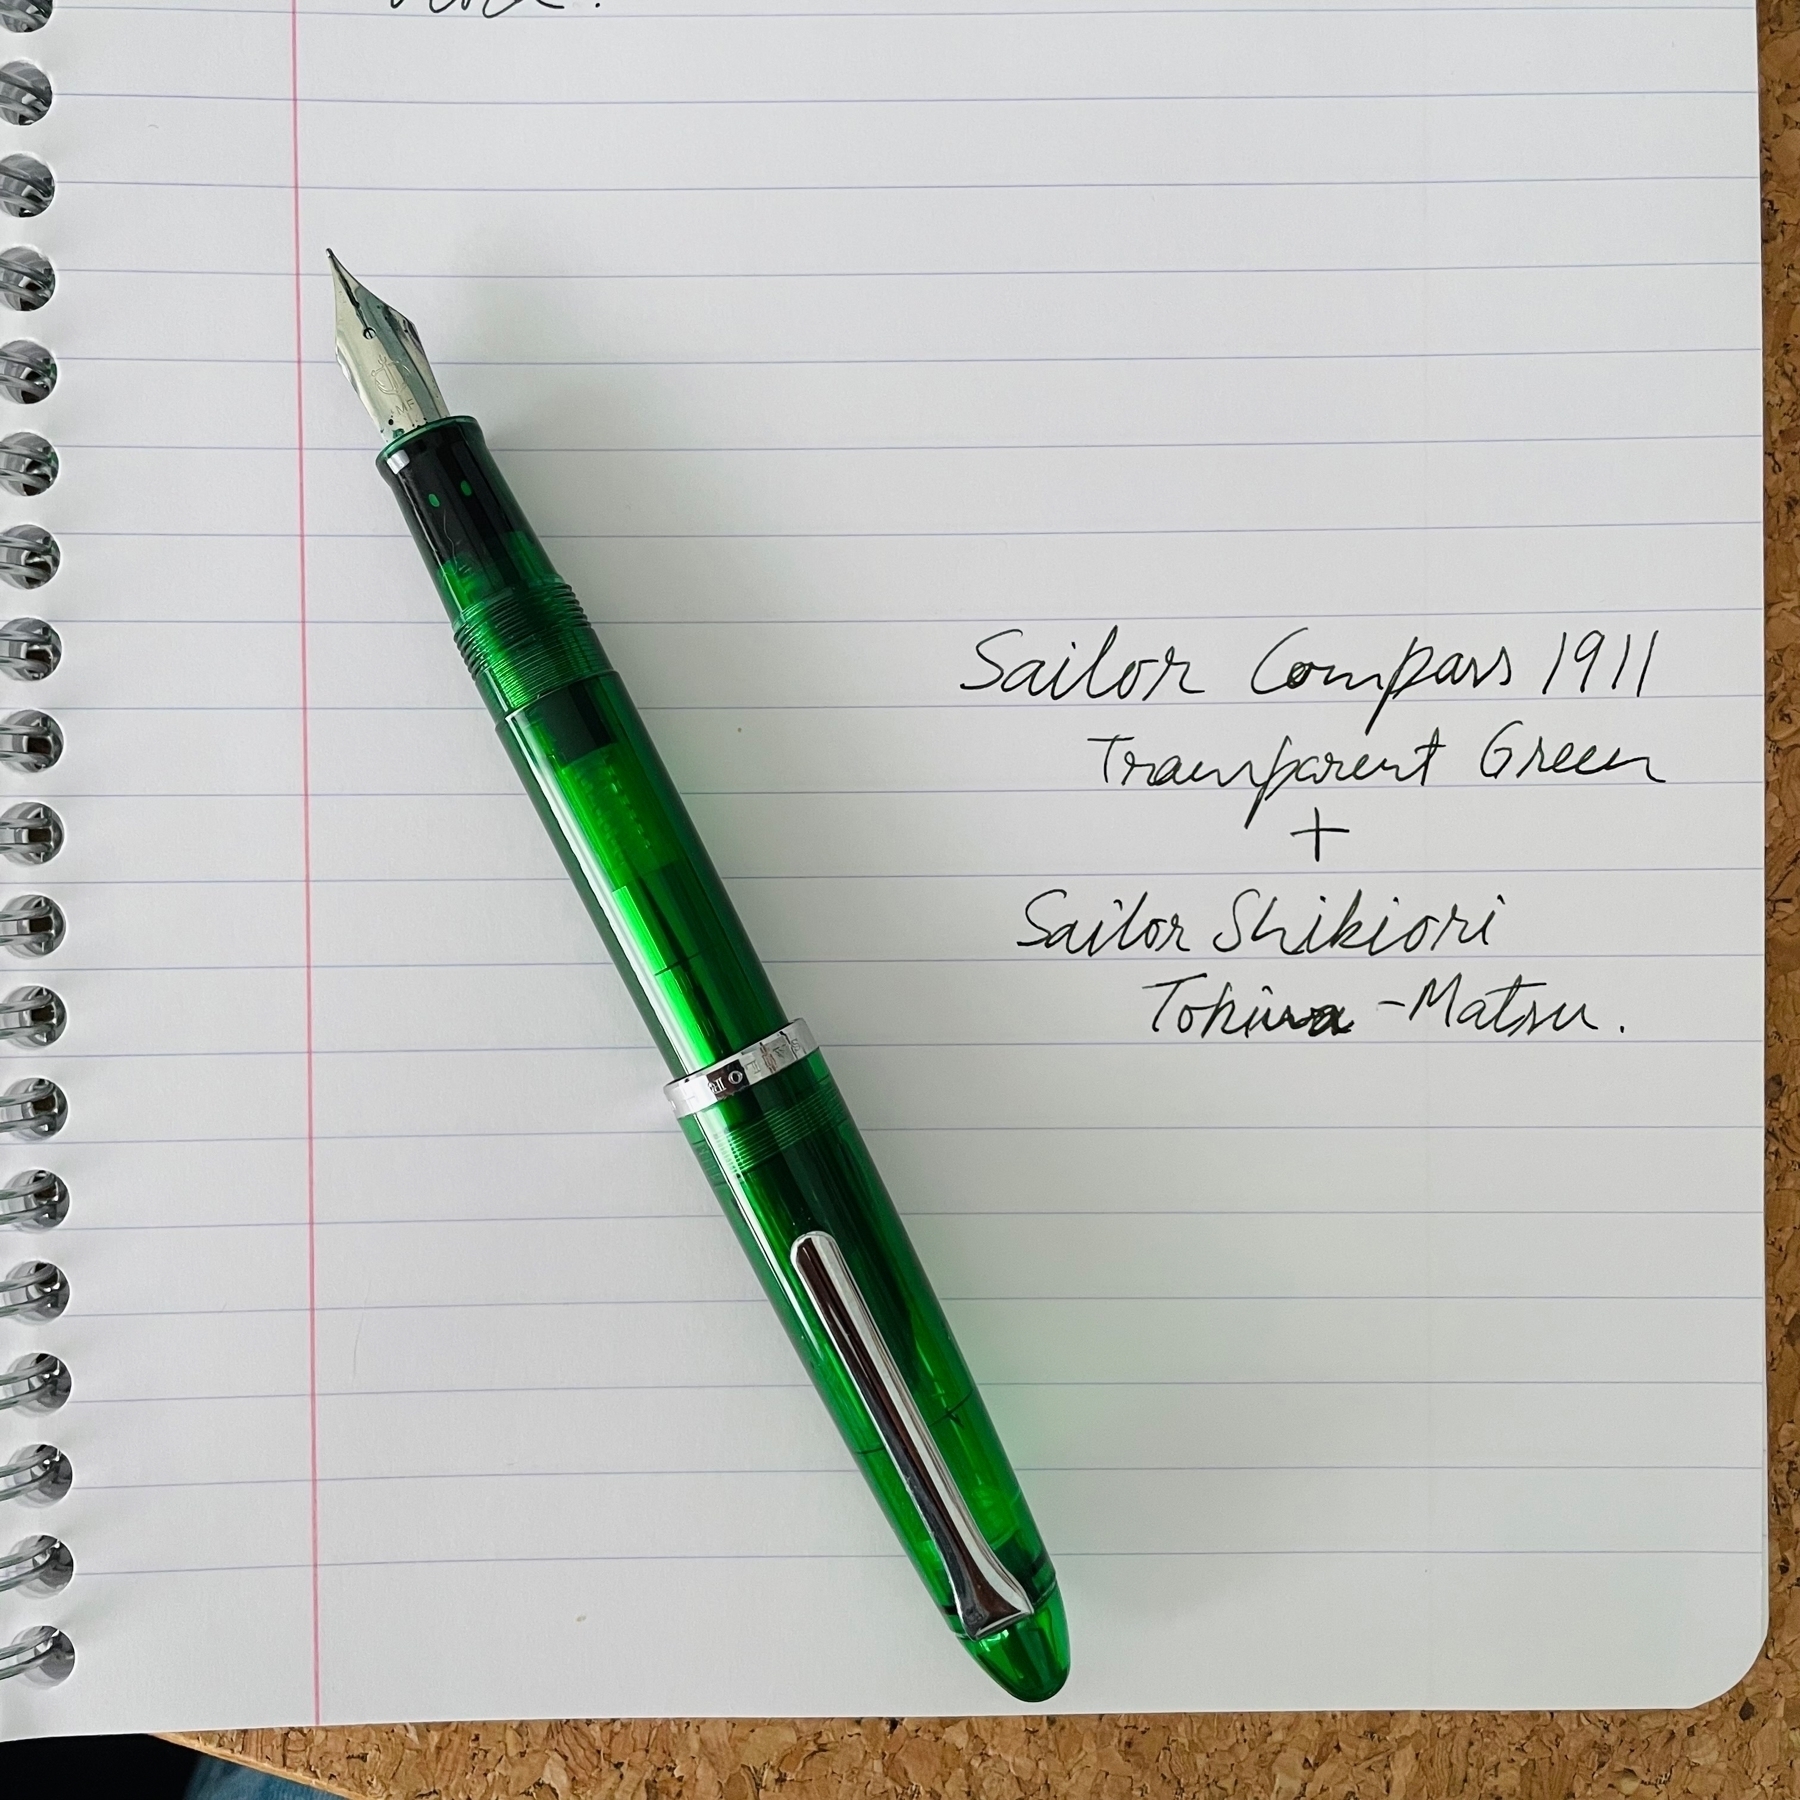 MF
Sailor Compass 1911
Transparent Green
+
Sailor Shikiori
Tokiwa-Matsu.